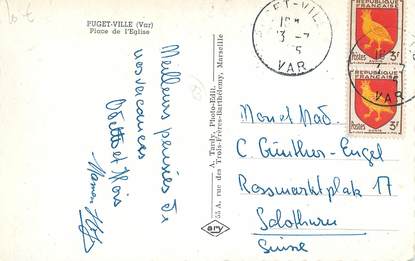 PUGET-VILLE (Var)
Place de l'Eglise
Meilleures pensées de
nos vacances
Odette et
Maman
A. Tardy, Photo-Edit.
55 A, rue des Trois-Frères-Barthélemy, Marseille
PUGET-VILLE
13 - 7
VAR
REPUBLIQUE FRANCAISE
Postes 3F
REPUBLIQUE FRANCAISE
Postes 3F
VAR
Mon et Mad.
C. Günthor-Engel
Rossmarktplatz 17
Solothurn
Suisse